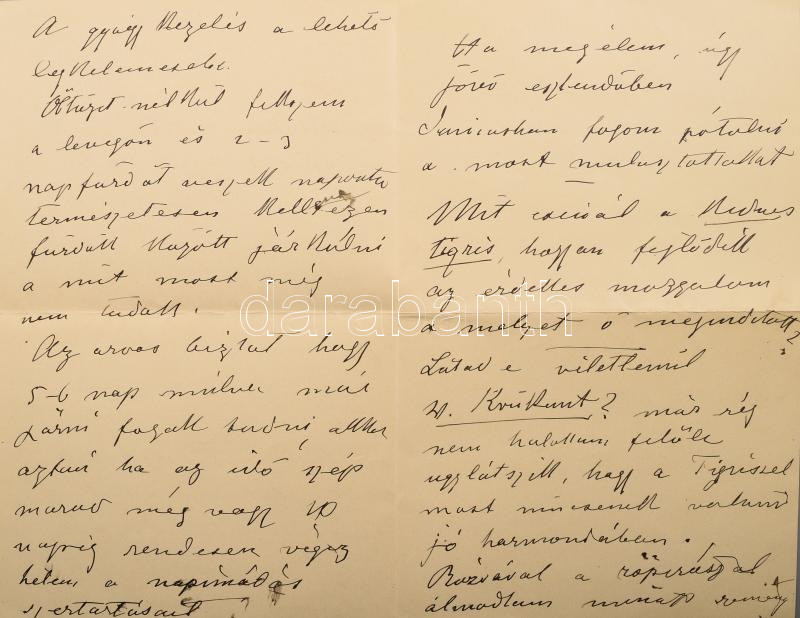 A gyógy kezelés a lehető
legkelemesebb.
Öltözet nélkül fekszem
a levegőn és 2-3
napfürdőt veszek naponta
természetesen kell ezen
fürdők között járkálni
a mit most még
nem tudok.
Az orvos biztat hogy
5-6 nap mulva már
járni fogok tudni, akkor
aztán ha az idő szép
marad még vagy 10
napig rendesen végez
hetem a napimádás
szertartásait
Ha megélem, úgy
jövő esztendőben
Juniusban fogom pótolni
a most mulasztottakat
Mit csinál a kedves
tigris, hogyan fejlődik
az érdekes mozgalom
a melyet ő megindított?
Látod e véletlenül
v. Krúkunt? már rég
nem hallottam felőle
ugylátszik, hogy a Tigrissel
most nincsenek valami
jó harmoniában.
Rózsával a röpirattal
álmodtam minap
darabanth